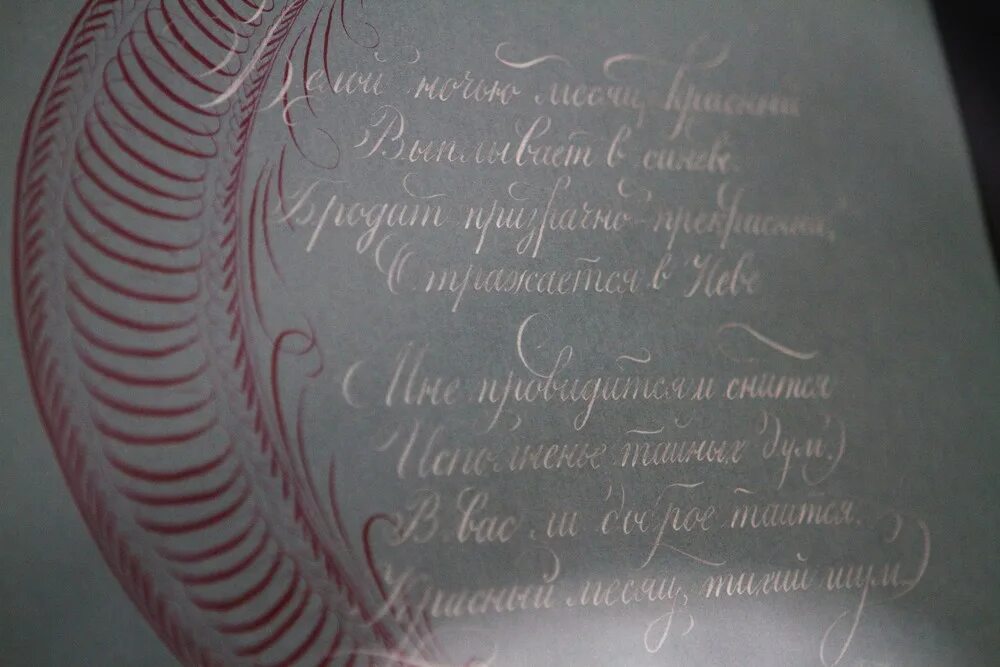 Белой ночью месяц красный
Выплывает в синеве.
Бродит призрачно-прекрасный,
Отражается в Неве.
Мне провидится и снится
Исполненье тайных дум.
В вас ли доброе таится,
Красный месяц, тихий шум?